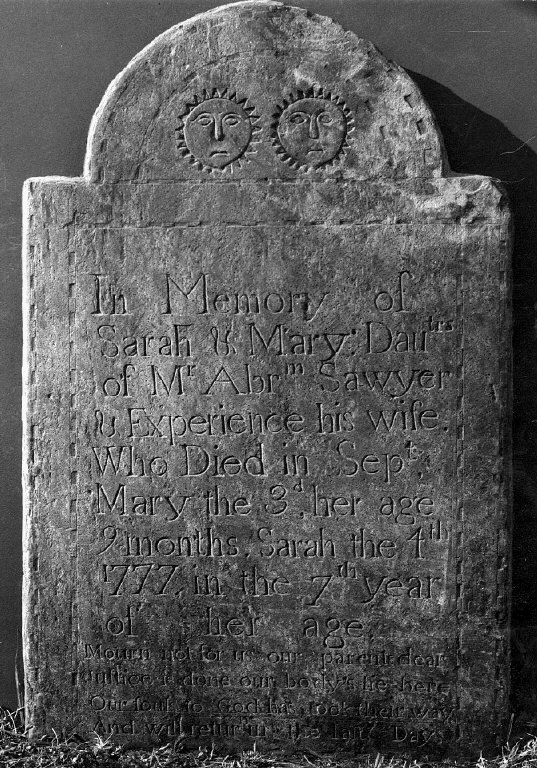 In Memory of
Sarah & Mary: Dautrs
of Mr Abrm Sawyer
& Experience his wife.
Who Died in Sept,
Mary the 3d, her age
9 months, Sarah the 4th
1777, in the 7th year
of her age.
Mourn not for us our parent dear
done our body's lie here
Our soul to God has took their way
And will return the last Day